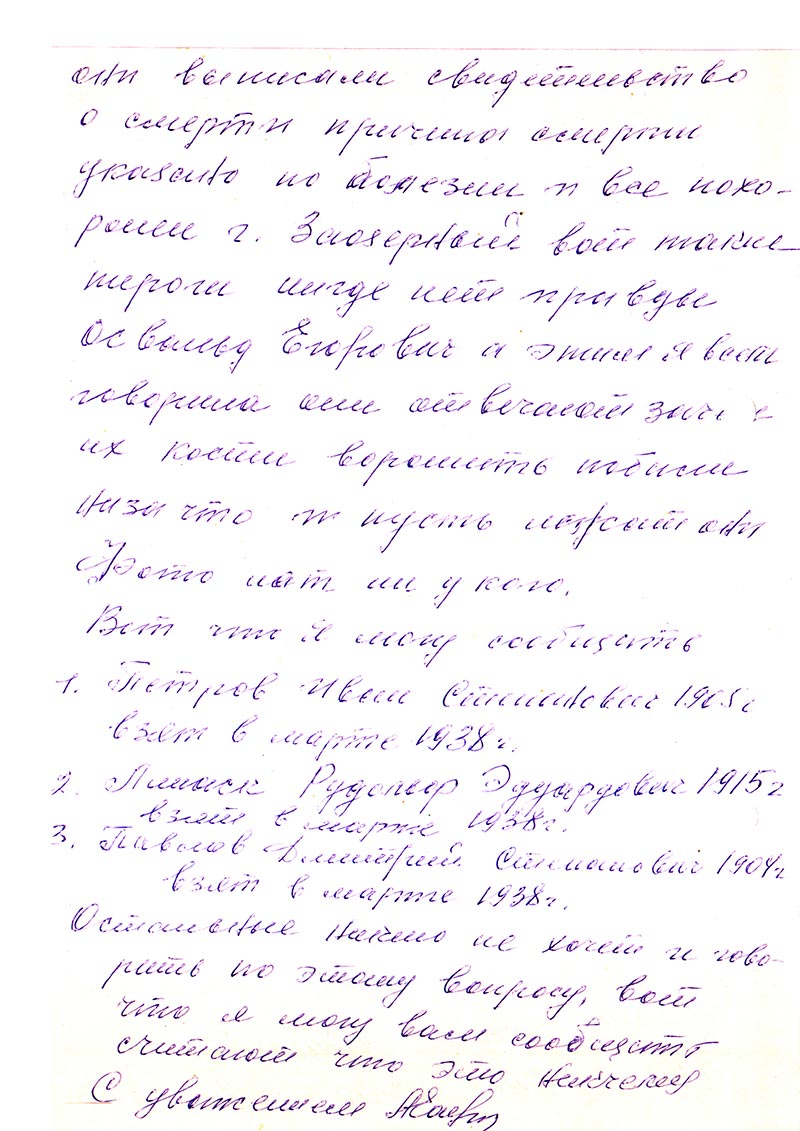 они выписали свидетельство
о смерти причина смерти
указано по болезни и все похо-
ронен г. Заозерный вот такие
пероги нигде нет правды
Освальд Егорович я этим
говорила они отвечают
их кости ворошить
низачто и пусть лежат они
Фото нет ни у кого.
Вот что я могу сообщить
1. Петров Иван Степанович 1905г
взят в марте 1938г.
2. Рудольф Эдуардович 1915г
взят в марте 1938г.
3. Павлов Дмитрий Степанович 1904г
взят в марте 1938г.
Остальные никто не хочет и гово-
рить по этому вопросу, вот
что я могу вам сообщить
считают что это никчему
С уважением